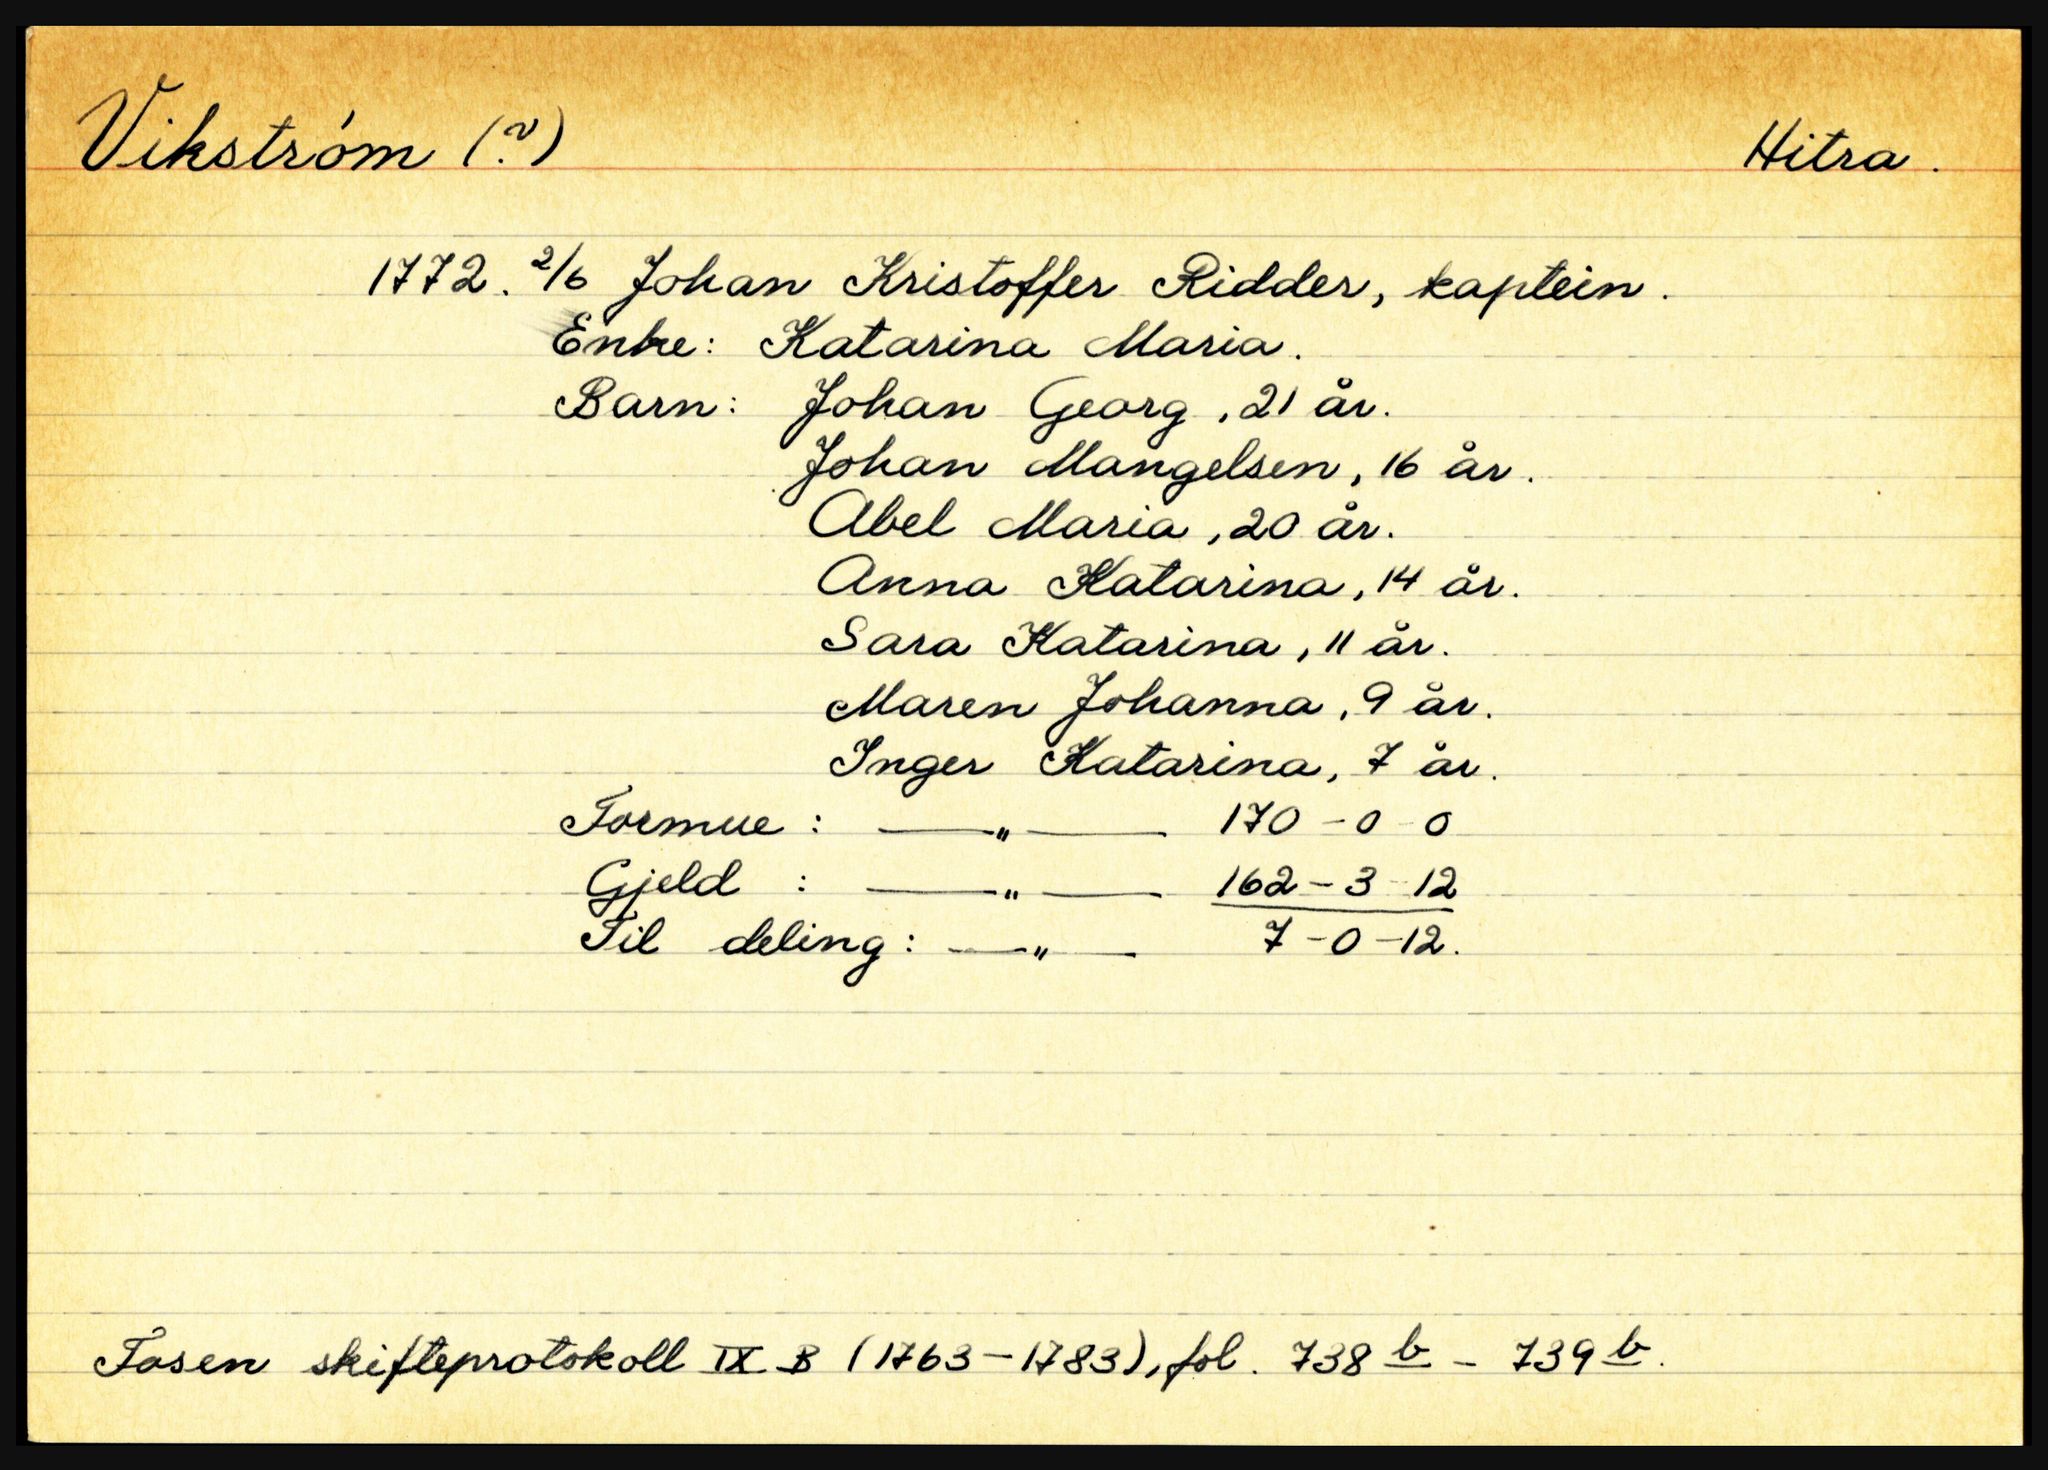 Vikstróm (?) Hitra.
1772. 2/6 Johan Kristoffer Ridder, kaptein.
Enke: Katarina Maria.
Barn: Johan Georg, 21 år.
Johan Mangelsen, 16 år.
Abel Maria, 20 år.
Anna Katarina, 14 år.
Sara Katarina, 11 år.
Maren Johanna, 9 år.
Inger Katarina, 7 år.
Formue: —"— 170 - 0 - 0
Gjeld : —"— 162 - 3 - 12
Til deling: —"— 7 - 0 - 12.
Fosen skifteprotokoll IX B (1763-1783), fol. 738 b - 739 b.